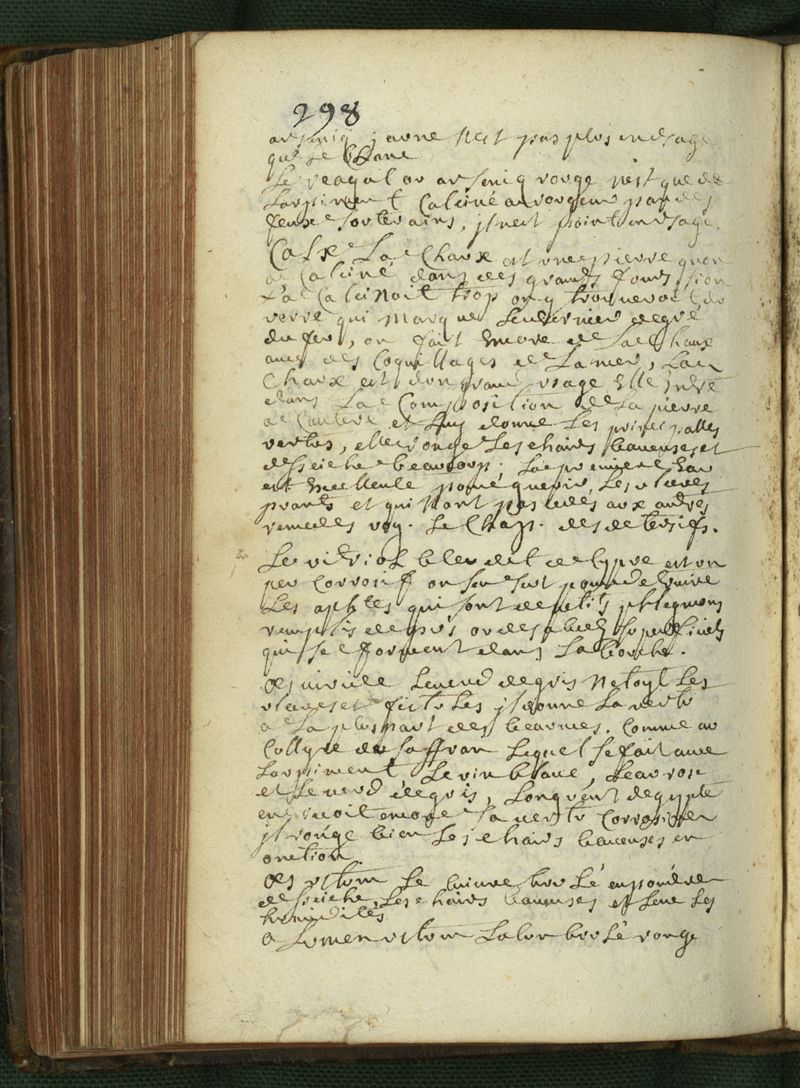 298
arseniq jaune n'est pas plus en usage
que le blanc
Le reagal ou arseniq rouge n'est que de
Lorpiment Calciné au rouge par des
feux souterains, il n'est point en usage.
Calx La Chaux est une pierre quon
a Calciné dans des grands fours, si on
La Calcinoit trop on y trouveroit du
verre qui marque le dernier degré
du feu, on fait encore de la Chaux
avec des Coquillages de la mer, La
Chaux est d'un grand usage Elle entre
dans La Composition de la pierre
a Cautere et luy donne Les principalles
vertus, elle ronge Les chairs baveuses et
desseiche beaucoup; La premiere Eau
est Excellente pour guerir Les ulceres
et qui n'ont pas cedés aux autres
remedes voy. Le Chap. des detersifs.
Le vitriol bleu dit de Cypre est un
peu Corrosif on sen sert pour detruire
Les aphtes qui sont de petits phlegmons
remplis de pus ou des abces superficiels
qui se forment dans La bouche.
Æs viride Le verd de gris Netoye Les
ulceres et il donne La vertu
a La pluspart des beaumes. Comme au
Collyre de Lequel se fait avec
Lorpiment, Le vin blanc, Leau rose
et Le verd de gris, Longuent degypte
en reçoit encore sa vertu Corrosive
il ronge bien Les chairs baveuses en
onction.
Æs ustum Le cuivre brulé en poudre
desseiche Les chairs baveuses et Les
humidités
Alumen ustum Lalun brulé ronge